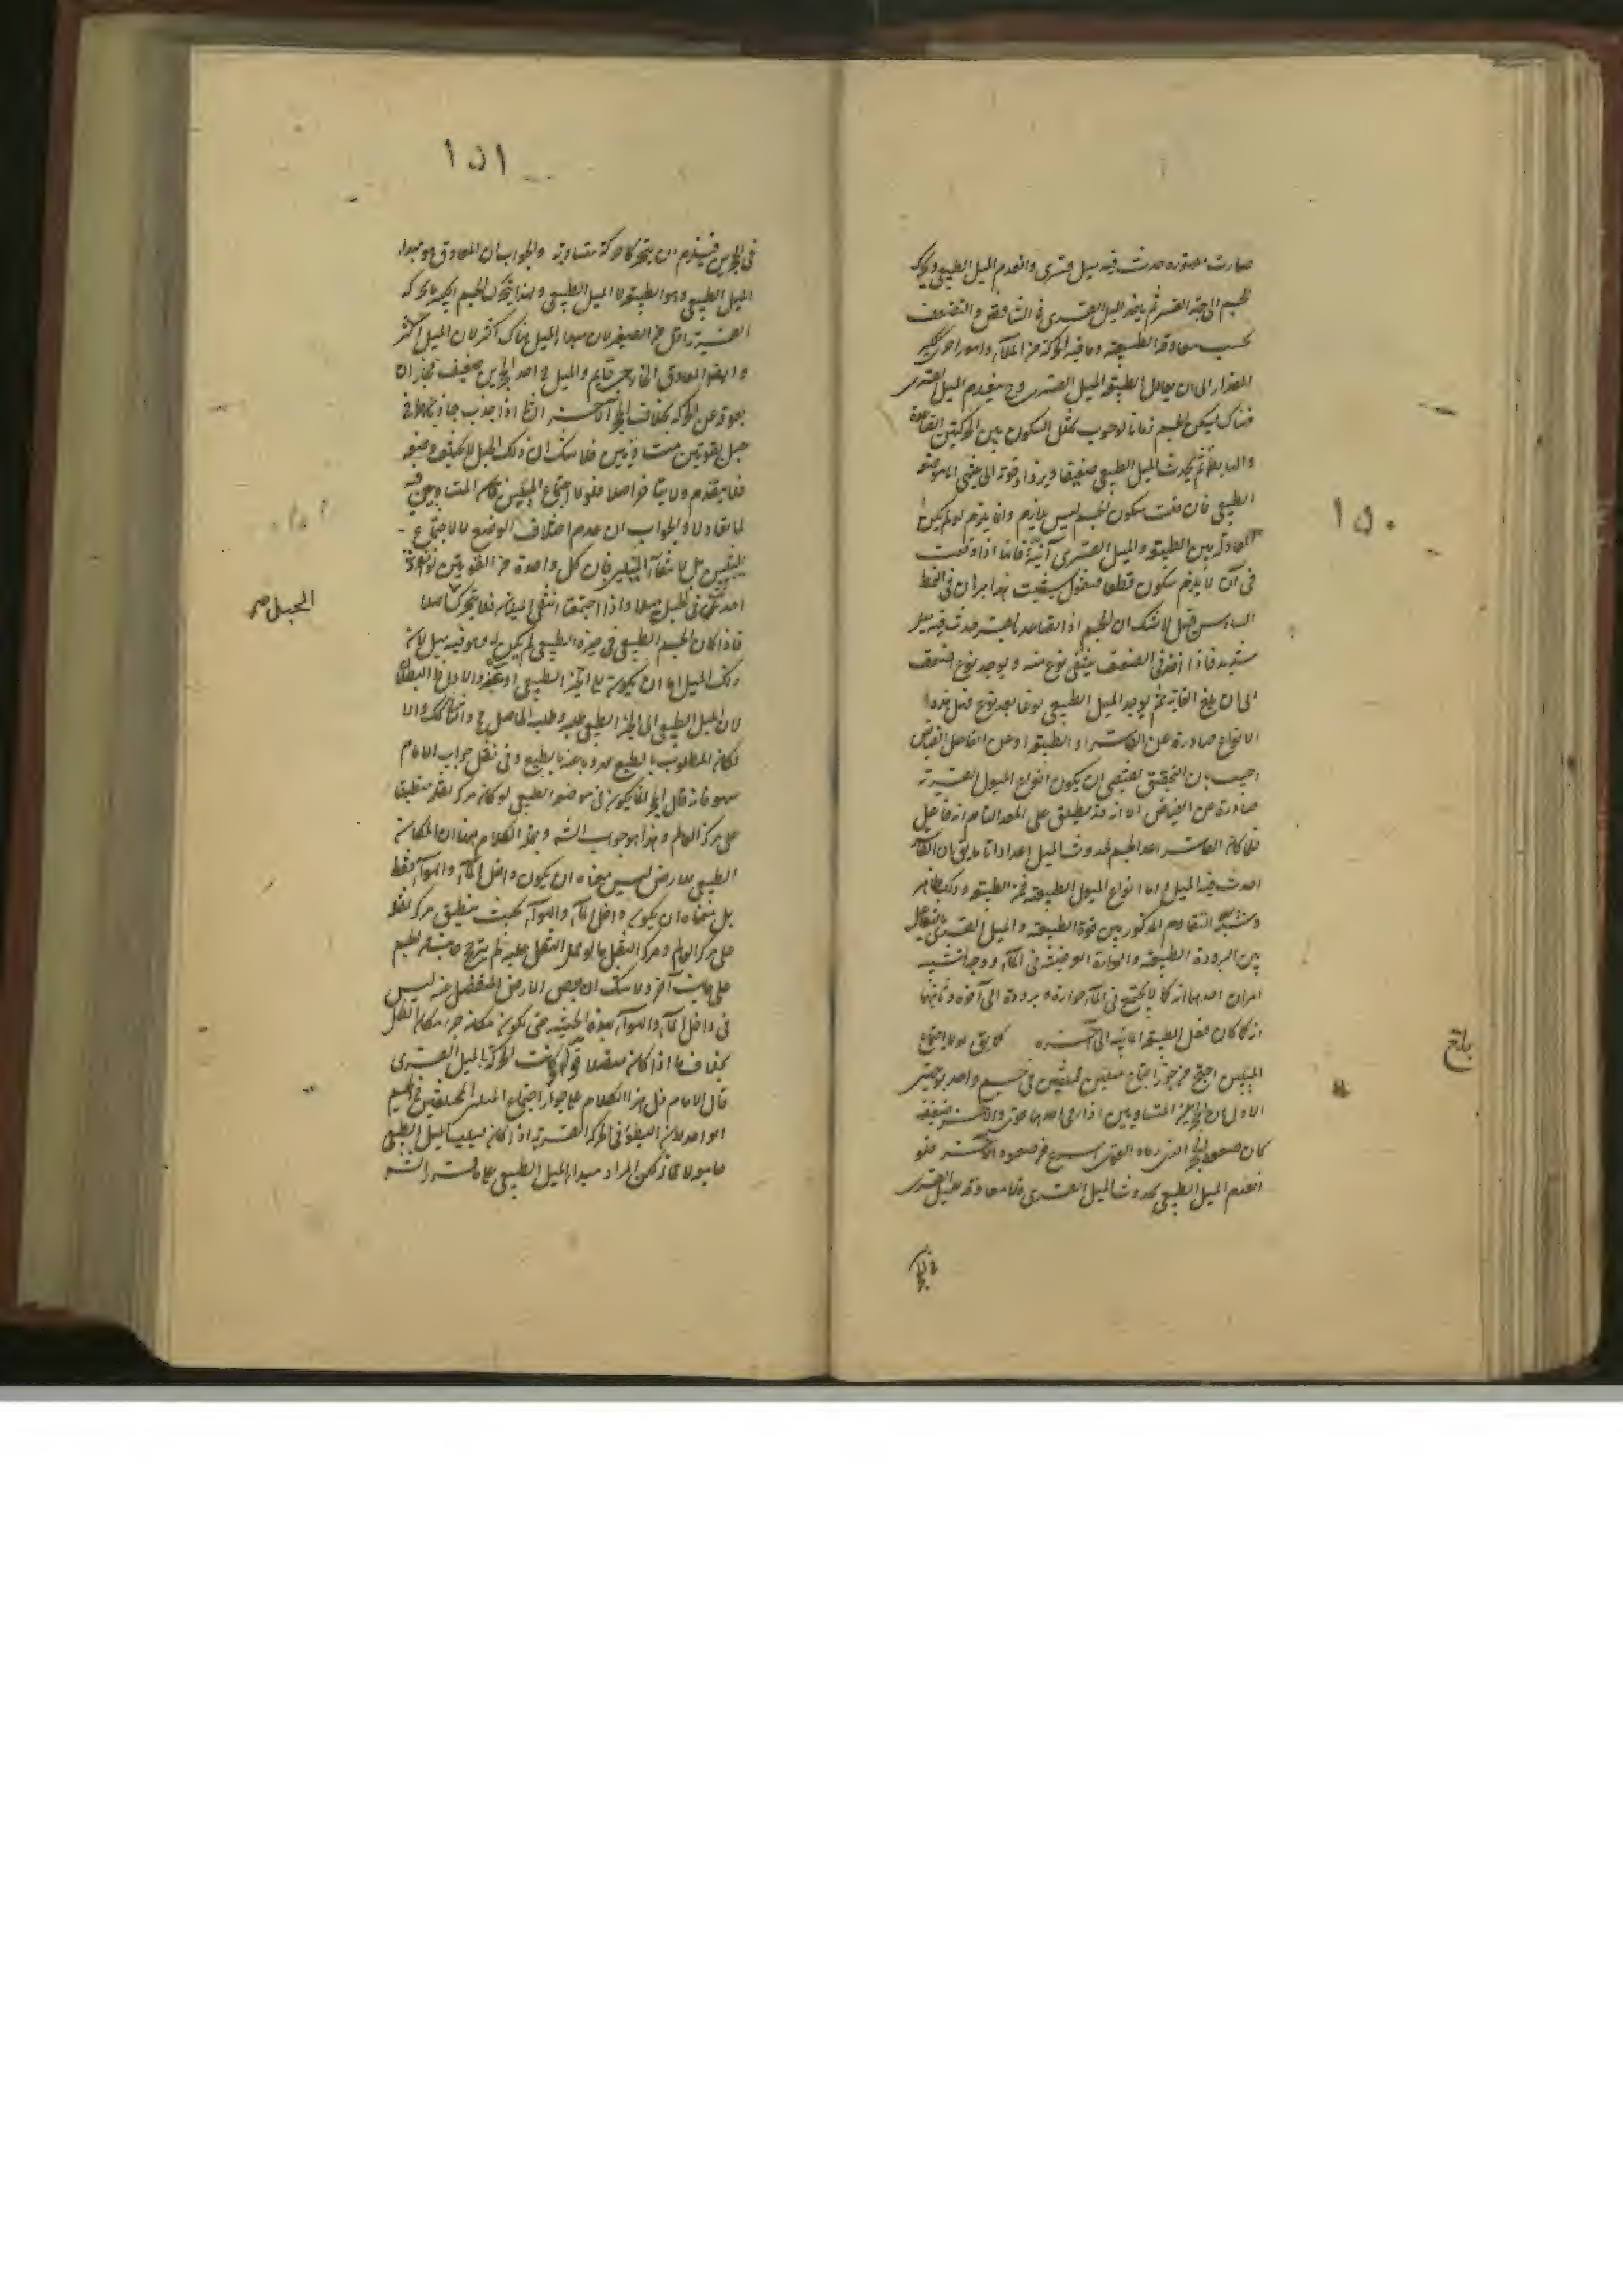 صارت مقصورة حدث فيه ميل قسرى وانعدم الميل الطبيعى ويحرك
الجسم الى جهة القسر ثم ياخذ الميل القسرى فى التناقص والتضعف
بحسب معاوقة الطبيعة وما فيه الحركة من الملأ وامور اخرى كبير
المقدار الى ان يعادل الطبيعة الميل القسرى وح ينعدم الميل القسرى
فهناك ليكن الجسم زمانا لوجوب تخلل السكون بين الحركتين الصاعدة
والهابطة ثم يحدث الميل الطبيعى ضعيفا ويزداد قوة الى موضعه
الطبيعى فان قلت سكون الجسم ليس بلازم وانما يلزم لو لم يكن
المعادلة بين الطبيعة والميل القسرى آنية فانها اذا وقعت
فى آن لا يلزم سكون قطعا فنقول سيثبت هذا برهان فى النمط
السادس قيل لا شك ان الجسم اذا تصاعد بالقسر حدث فيه ميل
شديد فاذا اخذ فى الضعف ينتفى نوع منه ويوجد نوع اضعف
الى ان يبلغ الغاية ثم يوجد الميل الطبيعى نوعا بعد نوع فهل هذه
الانواع صادرة عن القاسر او الطبيعة او عن الفاعل الفياض
اجيب بان التحقيق يقتضى ان يكون انواع الميول القسرية
صادرة عن الفياض الا انه قد يطلق على المعد التام انه فاعل
فلما كان القاسر اعد الجسم لحدوث الميل اعدادا تاما يق ان القاسر
احدث فيه الميل واما انواع الميول الطبيعية فمن الطبيعة وذلك ظاهر
وشبه التقاوم المذكور بين قوة الطبيعة والميل القسرى بالتفاعل
بين البرودة الطبيعية والحرارة العرضية فى الماء ووجه التشبيه
امران احدهما انه كما لا يجتمع فى الماء حرارة وبرودة الى آخره وثانيهما
انه كما كان فعل الطبيعة المائية الى آخره كما يق لو لا اجتماع
الميلين احتج من جوز اجتماع ميلين مختلفين فى جسم واحد بوجهين
الاول ان الحجرين المتساويين اذا رمى احدهما قوى والآخر ضعيف
كان صعود الحجر الذى رماه القوى اسرع من صعود الآخر فلو
انعدم الميل الطبيعى بحدوث الميل القسرى فلا معاوقة للميل القسرى
فى الحجرين
١٥٠
باخ
١٥١
فى الحجرين فيلزم ان يتحركا حركة متساوية والجواب ان المعاوق هو مبدا
الميل الطبيعى وهو الطبيعة لا الميل الطبيعى ولهذا يتحرك الجسم الكبير بالحركة
القسرية اقل من الصغير لان مبدا الميل هناك اكثر لا ان الميل اكثر
وايضا المعاوق الخارجى قايم والميل فى احد الحجرين ضعيف فجاز ان
يعوقه عن الحركة بخلاف الحجر الآخر الثانى اذا جذب جاذبان
حبل بقوتين متساويتين فلا شك ان ذلك الحبل لا يختلف وضعه
فلا يتقدم ولا يتاخر اصلا فلو لا اجتماع الميلين المتساويين فيه
لما تعادلا والجواب ان عدم اختلاف الوضع لا لاجتماع
الميلين بل لانتفاء الميلين فان كل واحدة من القوتين لو انفردت
احدثت فى الحبل ميلا واذا اجتمعتا انتفى الميلان فلا يتحرك اصلا
الحبل صح
فاذا كان الجسم الطبيعى فى حيزه الطبيعى لم يكن له وهو فيه ميل لان
ذلك الميل اما ان يكون الى الحيز الطبيعى او عنه والاول ظ البطلان
لان الميل الطبيعى الى الحيز الطبيعى طلبه وطلب الحاصل مح والثانى كذلك والا
لكان المطلوب بالطبع مهروبا عنه بالطبع وفى نقل جواب الامام
سهو فانه قال الحجر انما يكون فى موضعه الطبيعى لو كان مركز ثقله منطبقا
على مركز العالم وهذا هو جواب الش وهذا الكلام معناه ان المكان
الطبيعى للارض ليس معناه ان يكون داخل الماء والهواء فقط
بل معناه ان يكون داخل الماء والهواء بحيث ينطبق مركز ثقله
على مركز العالم ومركز الثقل ما لو حمل الثقل عليه لم يترجح جانب من الجسم
على جانب آخر ولا شك ان بعض الارض المنفصل عنه ليس
فى داخل الماء والهواء بهذه الحيثية حتى يكون مكانه جزء مكان الكل
بخلاف ما اذا كان متصلا قوله ولما كانت الحركة بالميل القسرى
قال الامام دل هذا الكلام على جواز اجتماع الميلين المختلفين فى الجسم
الواحد لان البطؤ فى الحركة القسرية اذا كان بسبب الميل الطبيعى